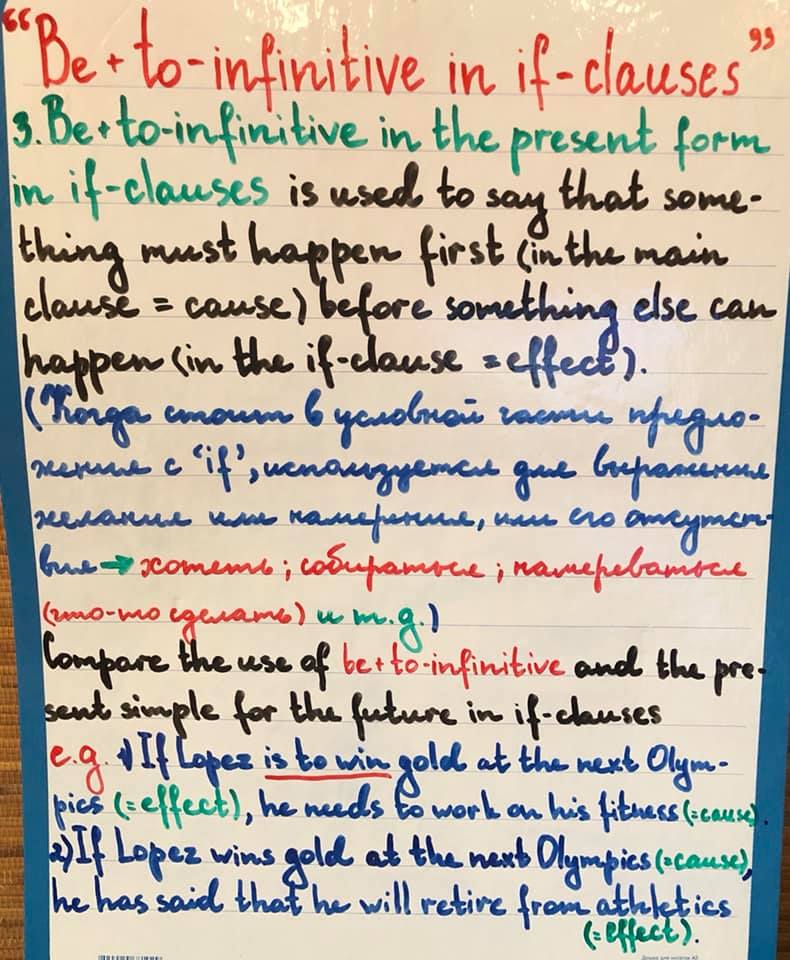 “Be + to-infinitive in if-clauses”
3. Be + to-infinitive in the present form
in if-clauses is used to say that some-
thing must happen first (in the main
clause = cause) before something else can
happen (in the if-clause = effect).
(Когда стоит в условной части предло-
жения с ‘if’, используется для выражения
желания или намерения, или его отсутст-
вия → хотеть; собираться; намереваться
(что-то сделать) и т.д.)
Compare the use of be + to-infinitive and the pre-
sent simple for the future in if-clauses
e.g. 1) If Lopez is to win gold at the next Olym-
pics (= effect), he needs to work on his fitness (= cause).
2) If Lopez wins gold at the next Olympics (= cause),
he has said that he will retire from athletics
(= effect).